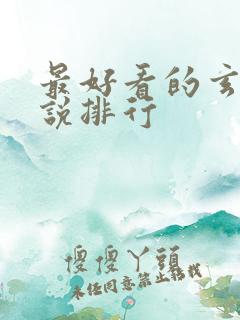 最好看的玄
說排行
傻傻丫頭
未经同意禁止转载